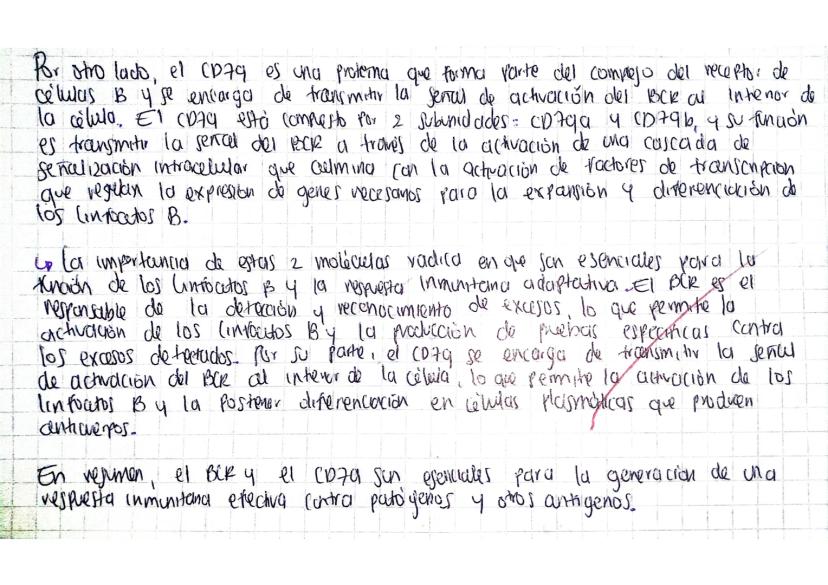 Por otro lado, el CD79 es una proteína que forma parte del complejo del receptor de
células B y se encarga de transmitir la señal de activación del BCR al interior de
la célula. El CD79 está compuesto por 2 subunidades: CD79a y CD79b, y su función
es transmitir la señal del BCR a través de la activación de una cascada de
señalización intracelular que culmina con la activación de factores de transcripción
que regulan la expresión de genes necesarios para la expansión y diferenciación de
los linfocitos B.
↳ La importancia de estas 2 moléculas radica en que son esenciales para la
función de los linfocitos B y la respuesta inmunitaria adaptativa. El BCR es el
responsable de la detección y reconocimiento de excesos, lo que permite la
activación de los linfocitos B y la producción de pruebas específicas contra
los excesos detectados. Por su parte, el CD79 se encarga de transmitir la señal
de activación del BCR al interior de la célula, lo que permite la activación de los
linfocitos B y la posterior diferenciación en células plasmáticas que producen
anticuerpos.
En resumen, el BCR y el CD79 son esenciales para la generación de una
respuesta inmunitaria efectiva contra patógenos y otros antígenos.